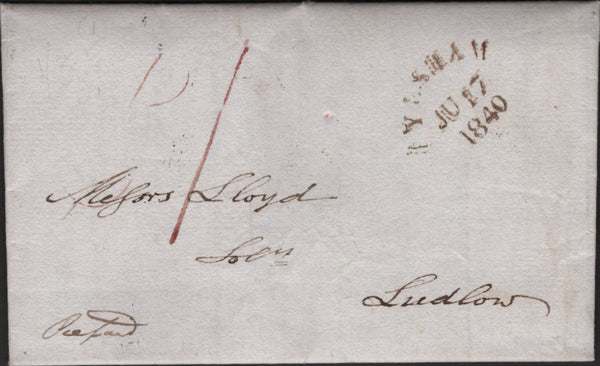 JU 17
1840
1
Messrs Lloyd
Solrs
Ludlow